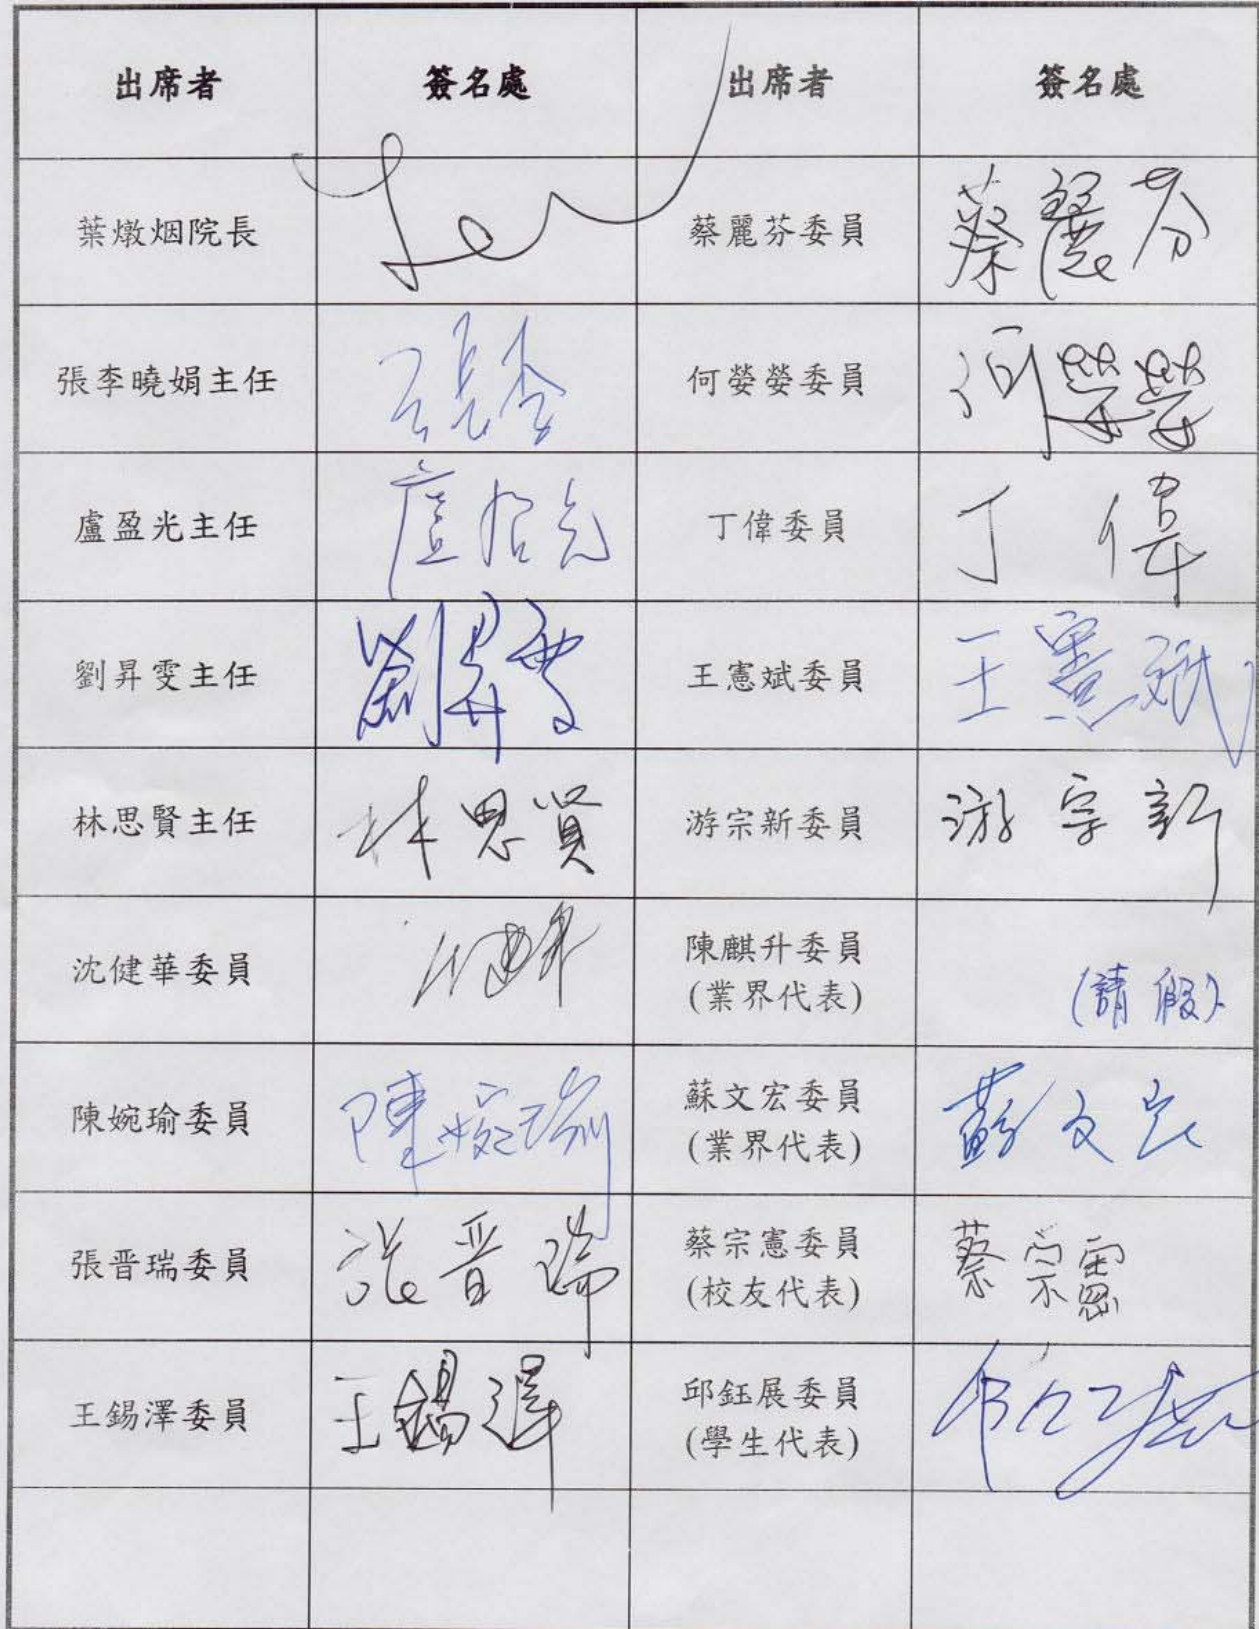 出席者 簽名處 出席者 簽名處
葉燉烟院長 蔡麗芬委員 蔡麗芬
張李曉娟主任 張李 何嫈嫈委員 何嫈嫈
盧盈光主任 盧盈光 丁偉委員 丁偉
劉昇雯主任 劉昇雯 王憲斌委員 王憲斌
林思賢主任 林思賢 游宗新委員 游宗新
沈健華委員 陳麒升委員
(業界代表) (請假)
陳婉瑜委員 陳婉瑜 蘇文宏委員 蘇文宏
(業界代表)
張晋瑞委員 張晋瑞 蔡宗憲委員 蔡宗憲
(校友代表)
王錫澤委員 王錫澤 邱鈺展委員
(學生代表)